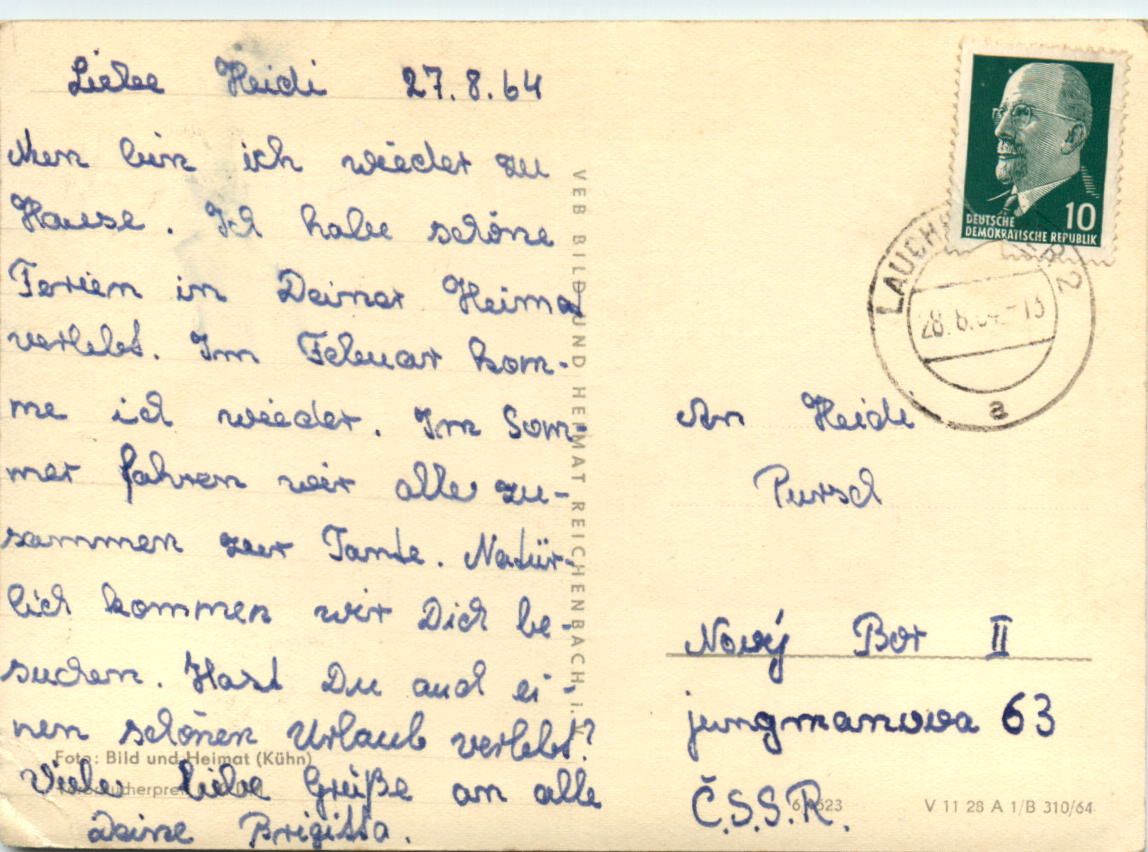 Liebe Heidi 27.8.64
Nun bin ich wieder zu
Hause. Ich habe schöne
Ferien in Deiner Heimat
verlebt. Im Febuar kom-
me ich wieder. Im Som-
mer fahren wir alle zu-
sammen zur Tante. Natür-
lich kommen wir Dich be-
suchen. Hast Du auch ei-
nen schönen Urlaub verlebt?
Viele liebe Grüße an alle
Deine Brigitta.
Foto: Bild und Heimat (Kühn)
VEB BILD UND HEIMAT REICHENBACH i. V.
10
DEUTSCHE
DEMOKRATISCHE REPUBLIK
2
a
An Heidi
Pursch
Nový Bor II
jungmanowa 63
Č.S.S.R.
V 11 28 A 1/B 310/64